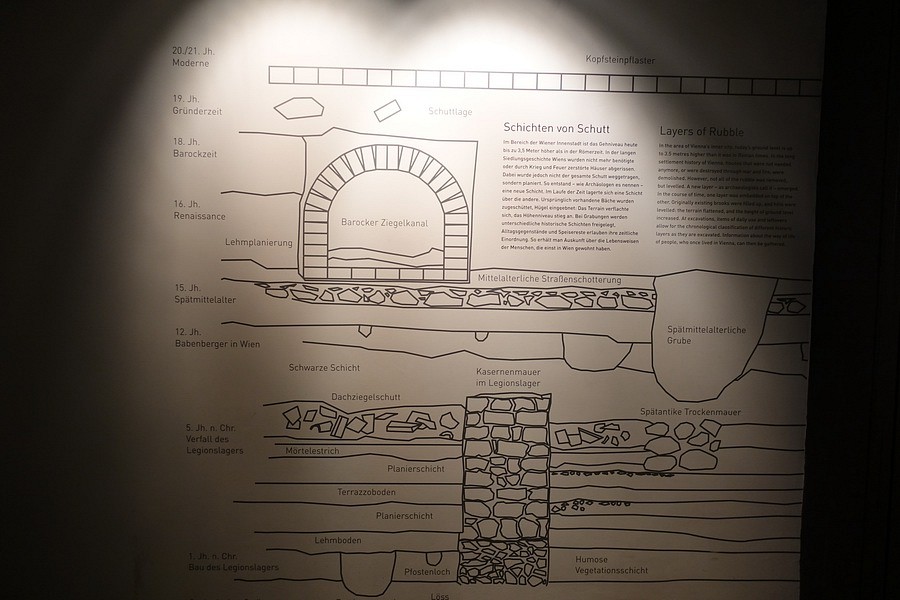 20./21. Jh.
Moderne
Kopfsteinpflaster
19. Jh.
Gründerzeit
Schuttlage
18. Jh.
Barockzeit
Schichten von Schutt
Im Bereich der Wiener Innenstadt ist das Gehniveau heute
bis zu 3,5 Meter höher als in der Römerzeit. In der langen
Siedlungsgeschichte Wiens wurden nicht mehr benötigte
oder durch Krieg und Feuer zerstörte Häuser abgerissen.
Dabei wurde jedoch nicht der gesamte Schutt weggetragen,
sondern planiert. So entstand – wie Archäologen es nennen –
eine neue Schicht. Im Laufe der Zeit lagerte sich eine Schicht
über die andere. Ursprünglich vorhandene Bäche wurden
zugeschüttet, Hügel eingeebnet. Das Terrain verflachte
sich, das Höhenniveau stieg an. Bei Grabungen werden
unterschiedliche historische Schichten freigelegt,
Alltagsgegenstände und Speisereste erlauben ihre zeitliche
Einordnung. So erhält man Auskunft über die Lebensweisen
der Menschen, die einst in Wien gewohnt haben.
Layers of Rubble
In the area of Vienna's inner city, today's ground level is up
to 3.5 metres higher than
settlement history of Vienna, houses that were not needed
anymore, or were destroyed through war and fire, were
demolished. However, not all of the rubble was removed,
but levelled. A new layer – as archaeologists call it –
In the course of time, one layer was
other. Originally existing brooks were filled up, and hills were
levelled; the terrain flattened, and the height of ground level
increased. At excavations, items of daily use and
allow for the chronological classification of different historical
layers as they are excavated. Information about the way of life
of people, who once lived in Vienna, can thus be gathered.
16. Jh.
Renaissance
Barocker Ziegelkanal
Lehmplanierung
Mittelalterliche Straßenschotterung
15. Jh.
Spätmittelalter
12. Jh.
Babenberger in Wien
Spätmittelalterliche
Grube
Schwarze Schicht
Kasernenmauer
im Legionslager
Dachziegelschutt
Spätantike Trockenmauer
5. Jh. n. Chr.
Verfall des
Legionslagers
Mörtelestrich
Planierschicht
Terrazzoboden
Planierschicht
Lehmboden
1. Jh. n. Chr.
Bau des Legionslagers
Pfostenloch
Humose
Vegetationsschicht
Löss